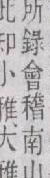 所錄會稽南山
此印小雅大雅